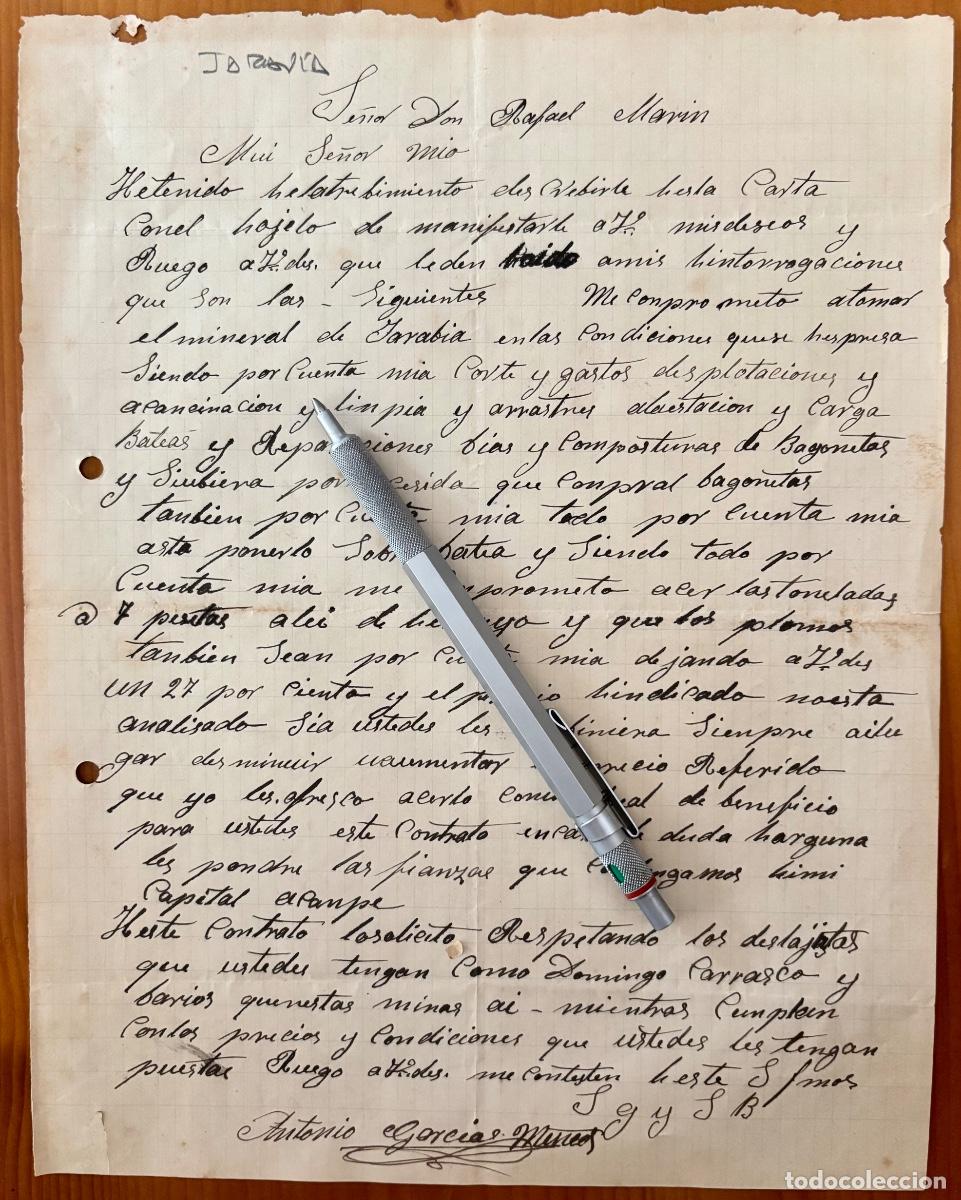 JARAVIA
Señor Don Rafael Marin
Mui Señor Mio
Hetenido helatrebimiento descrebirle hesta Carta
Conel hojeto de manifestarle a Vº misdeseos y
Ruego a Vºdes. que leden amis hintorrogaciones
que Son las - Siguientes Me Conprometo atomar
el mineral de Jarabia enlas Condiciones quese hespresa
Siendo por Cuenta mia Corte y gastos desplotaciones y
acancinacion y linpia y arrastres alaestacion y Carga
Bateas y bias y Composturas de Bagonetas
y Siubiera que Conpral bagonetas
tanbien por mia todo por Cuenta mia
asta ponerlo batea y Siendo todo por
Cuenta mia me acer lastoneladas
a 7 pesetas alei de y que los plomos
tanbien Sean por mia dejando a Vºdes
un 27 por Ciento y el hindicado noesta
analisado Sia ustedes les Sienpre ailu
gar desminuir uaumentar Referido
que yo les.ofresco acerlo de beneficio
para ustedes este Contrato duda harguna
les pondre las fianzas que himi
Capital acanpe
Heste Contrato losolicito Respetando los deslajistas
que ustedes tengan Como Domingo Carrasco y
barios quenestas minas ai - mientras Cunplan
Conlos precios y Condiciones que ustedes les tengan
puestas Ruego a Vºdes. me Contesten heste S
S G y S B
Antonio Garcias
todocoleccion